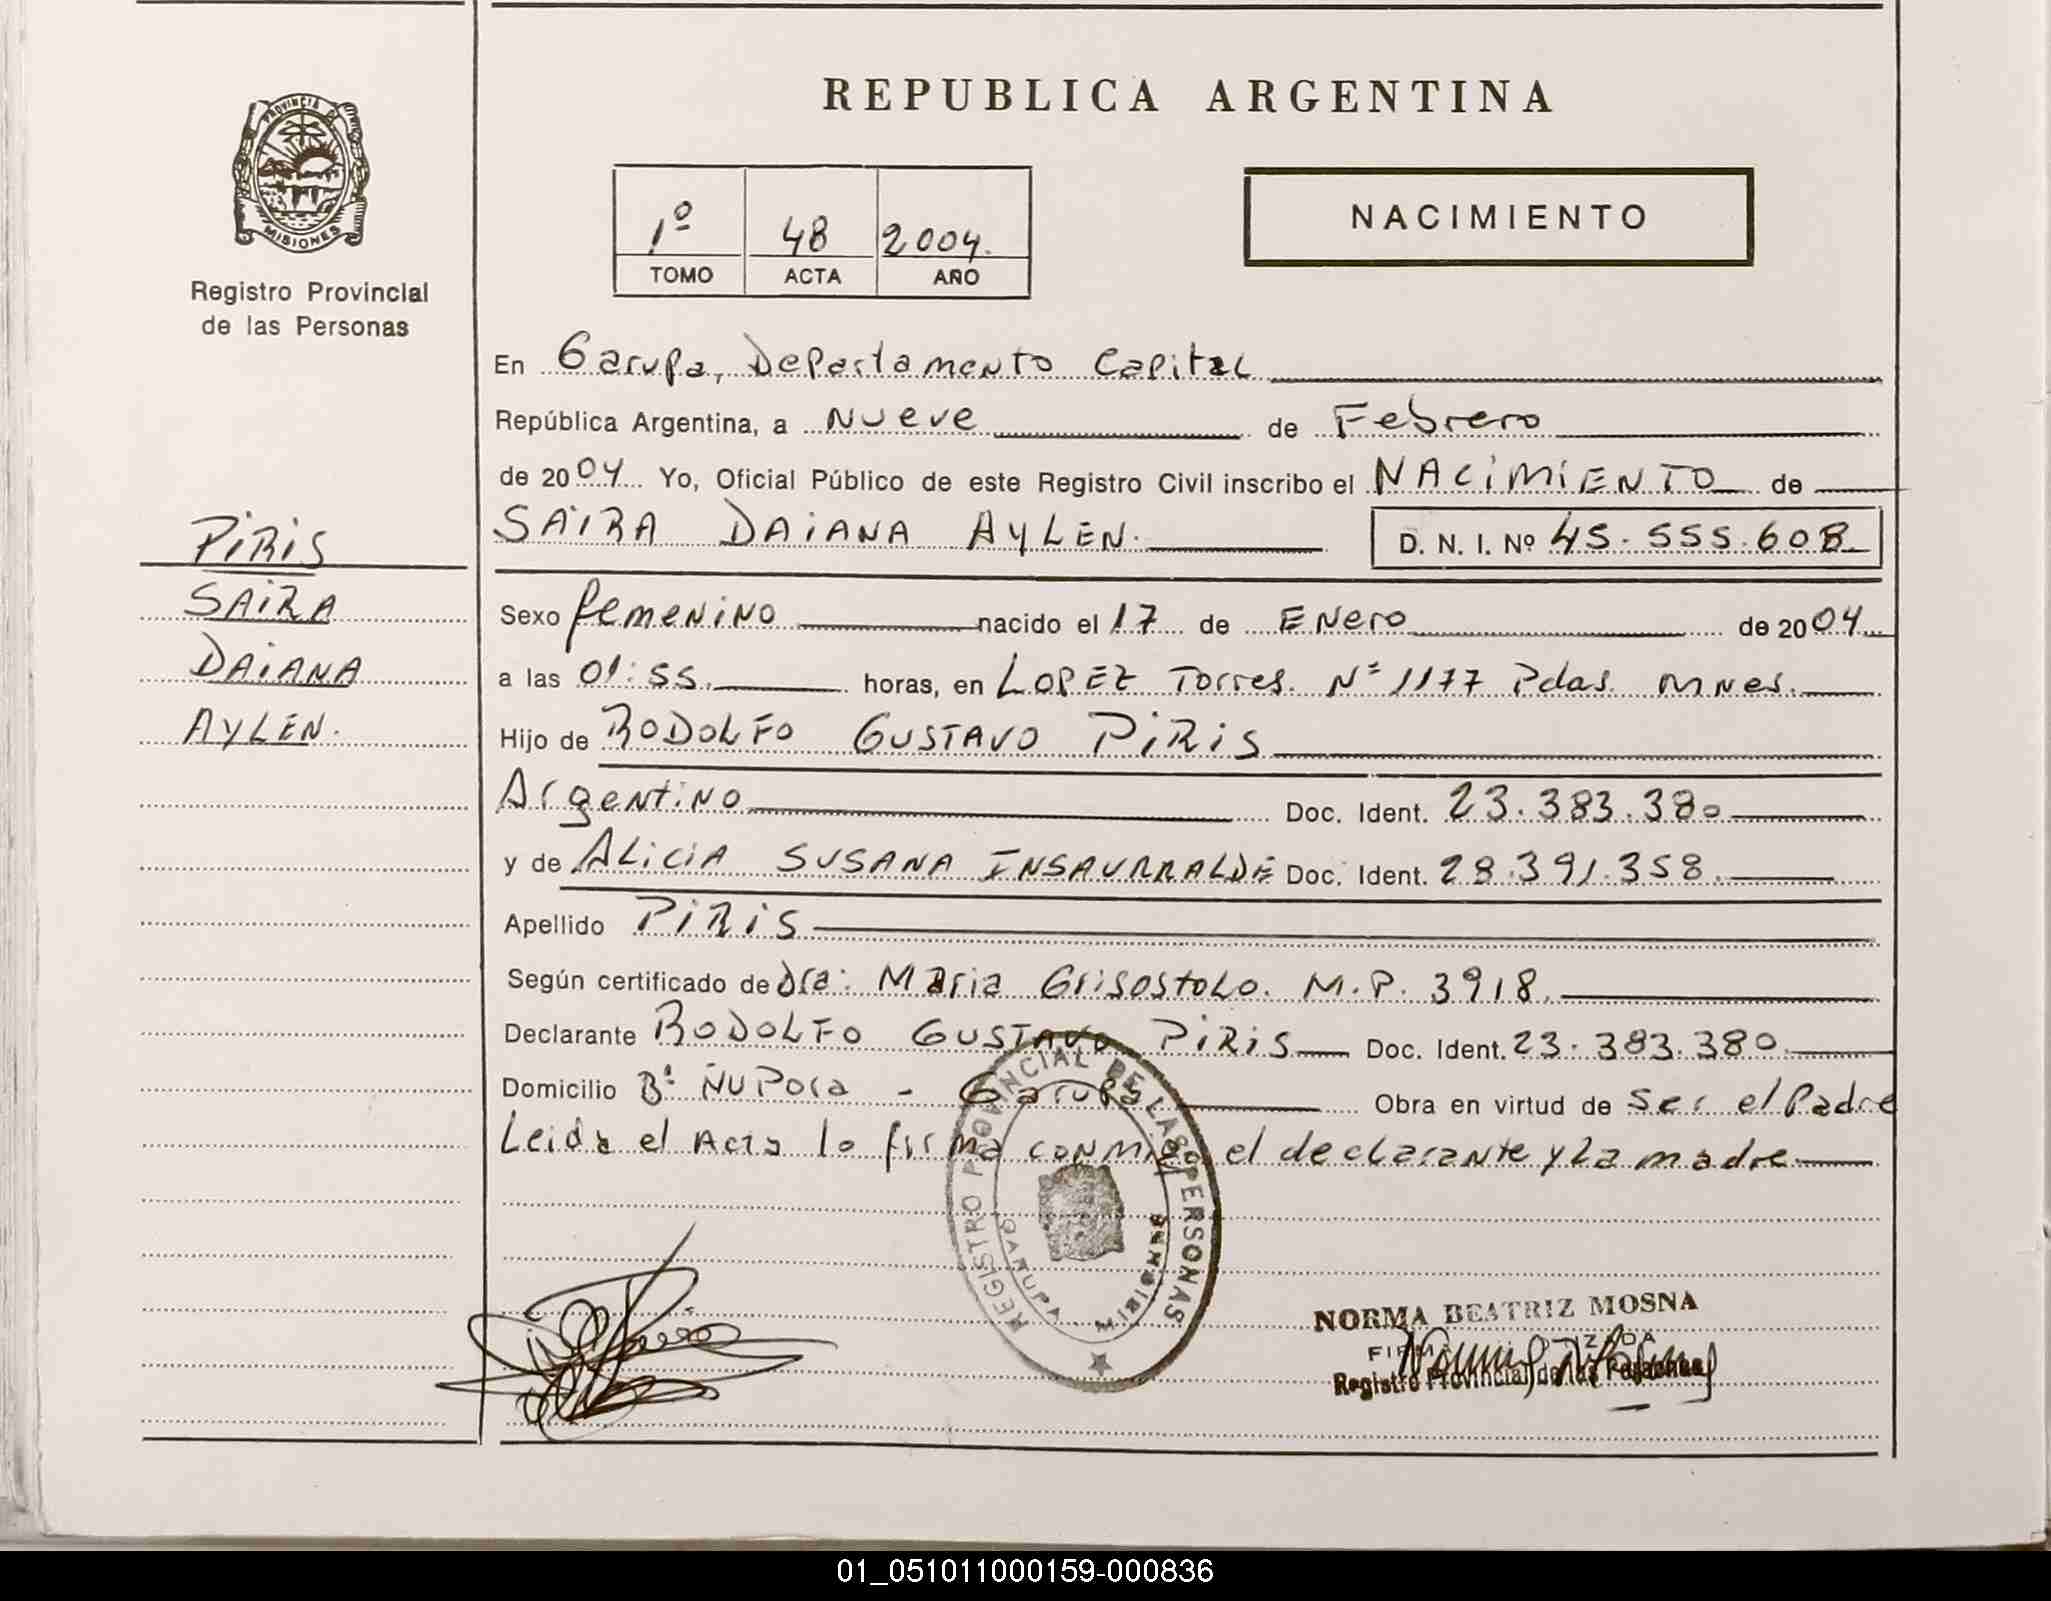 REPUBLICA ARGENTINA
PROVINCIA DE
MISIONES
Registro Provincial
de las Personas
1º 48 2004.
TOMO ACTA AÑO
NACIMIENTO
En Garupa, Departamento Capital
República Argentina, a Nueve de Febrero
de 2004 Yo, Oficial Público de este Registro Civil inscribo el NACIMIENTO de
SAIRA DAIANA AYLEN. D. N. I. Nº 45.555.608
PIRIS
SAIRA
DAIANA
AYLEN.
Sexo femenino nacido el 17 de Enero de 2004
a las 01:55. horas, en LOPEZ Torres. Nº 1177 Pdas. Mnes.
Hijo de RODOLFO GUSTAVO PIRIS
Argentino Doc. Ident. 23.383.380
y de ALICIA SUSANA INSAURRALDE Doc. Ident. 28.391.358.
Apellido PIRIS
Según certificado de Dra: Maria Grisostolo. M.P. 3918.
Declarante RODOLFO GUSTAVO PIRIS Doc. Ident. 23.383.380.
Domicilio Bº Ñu Pora - Garupa Obra en virtud de ser el Padre
Leida el Acta lo firma conmigo el declarante y La madre
REGISTRO PROVINCIAL DE LAS PERSONAS
GARUPA MISIONES
NORMA BEATRIZ MOSNA
FIRMA AUTORIZADA
Registro Provincial de las Personas
01_051011000159-000836